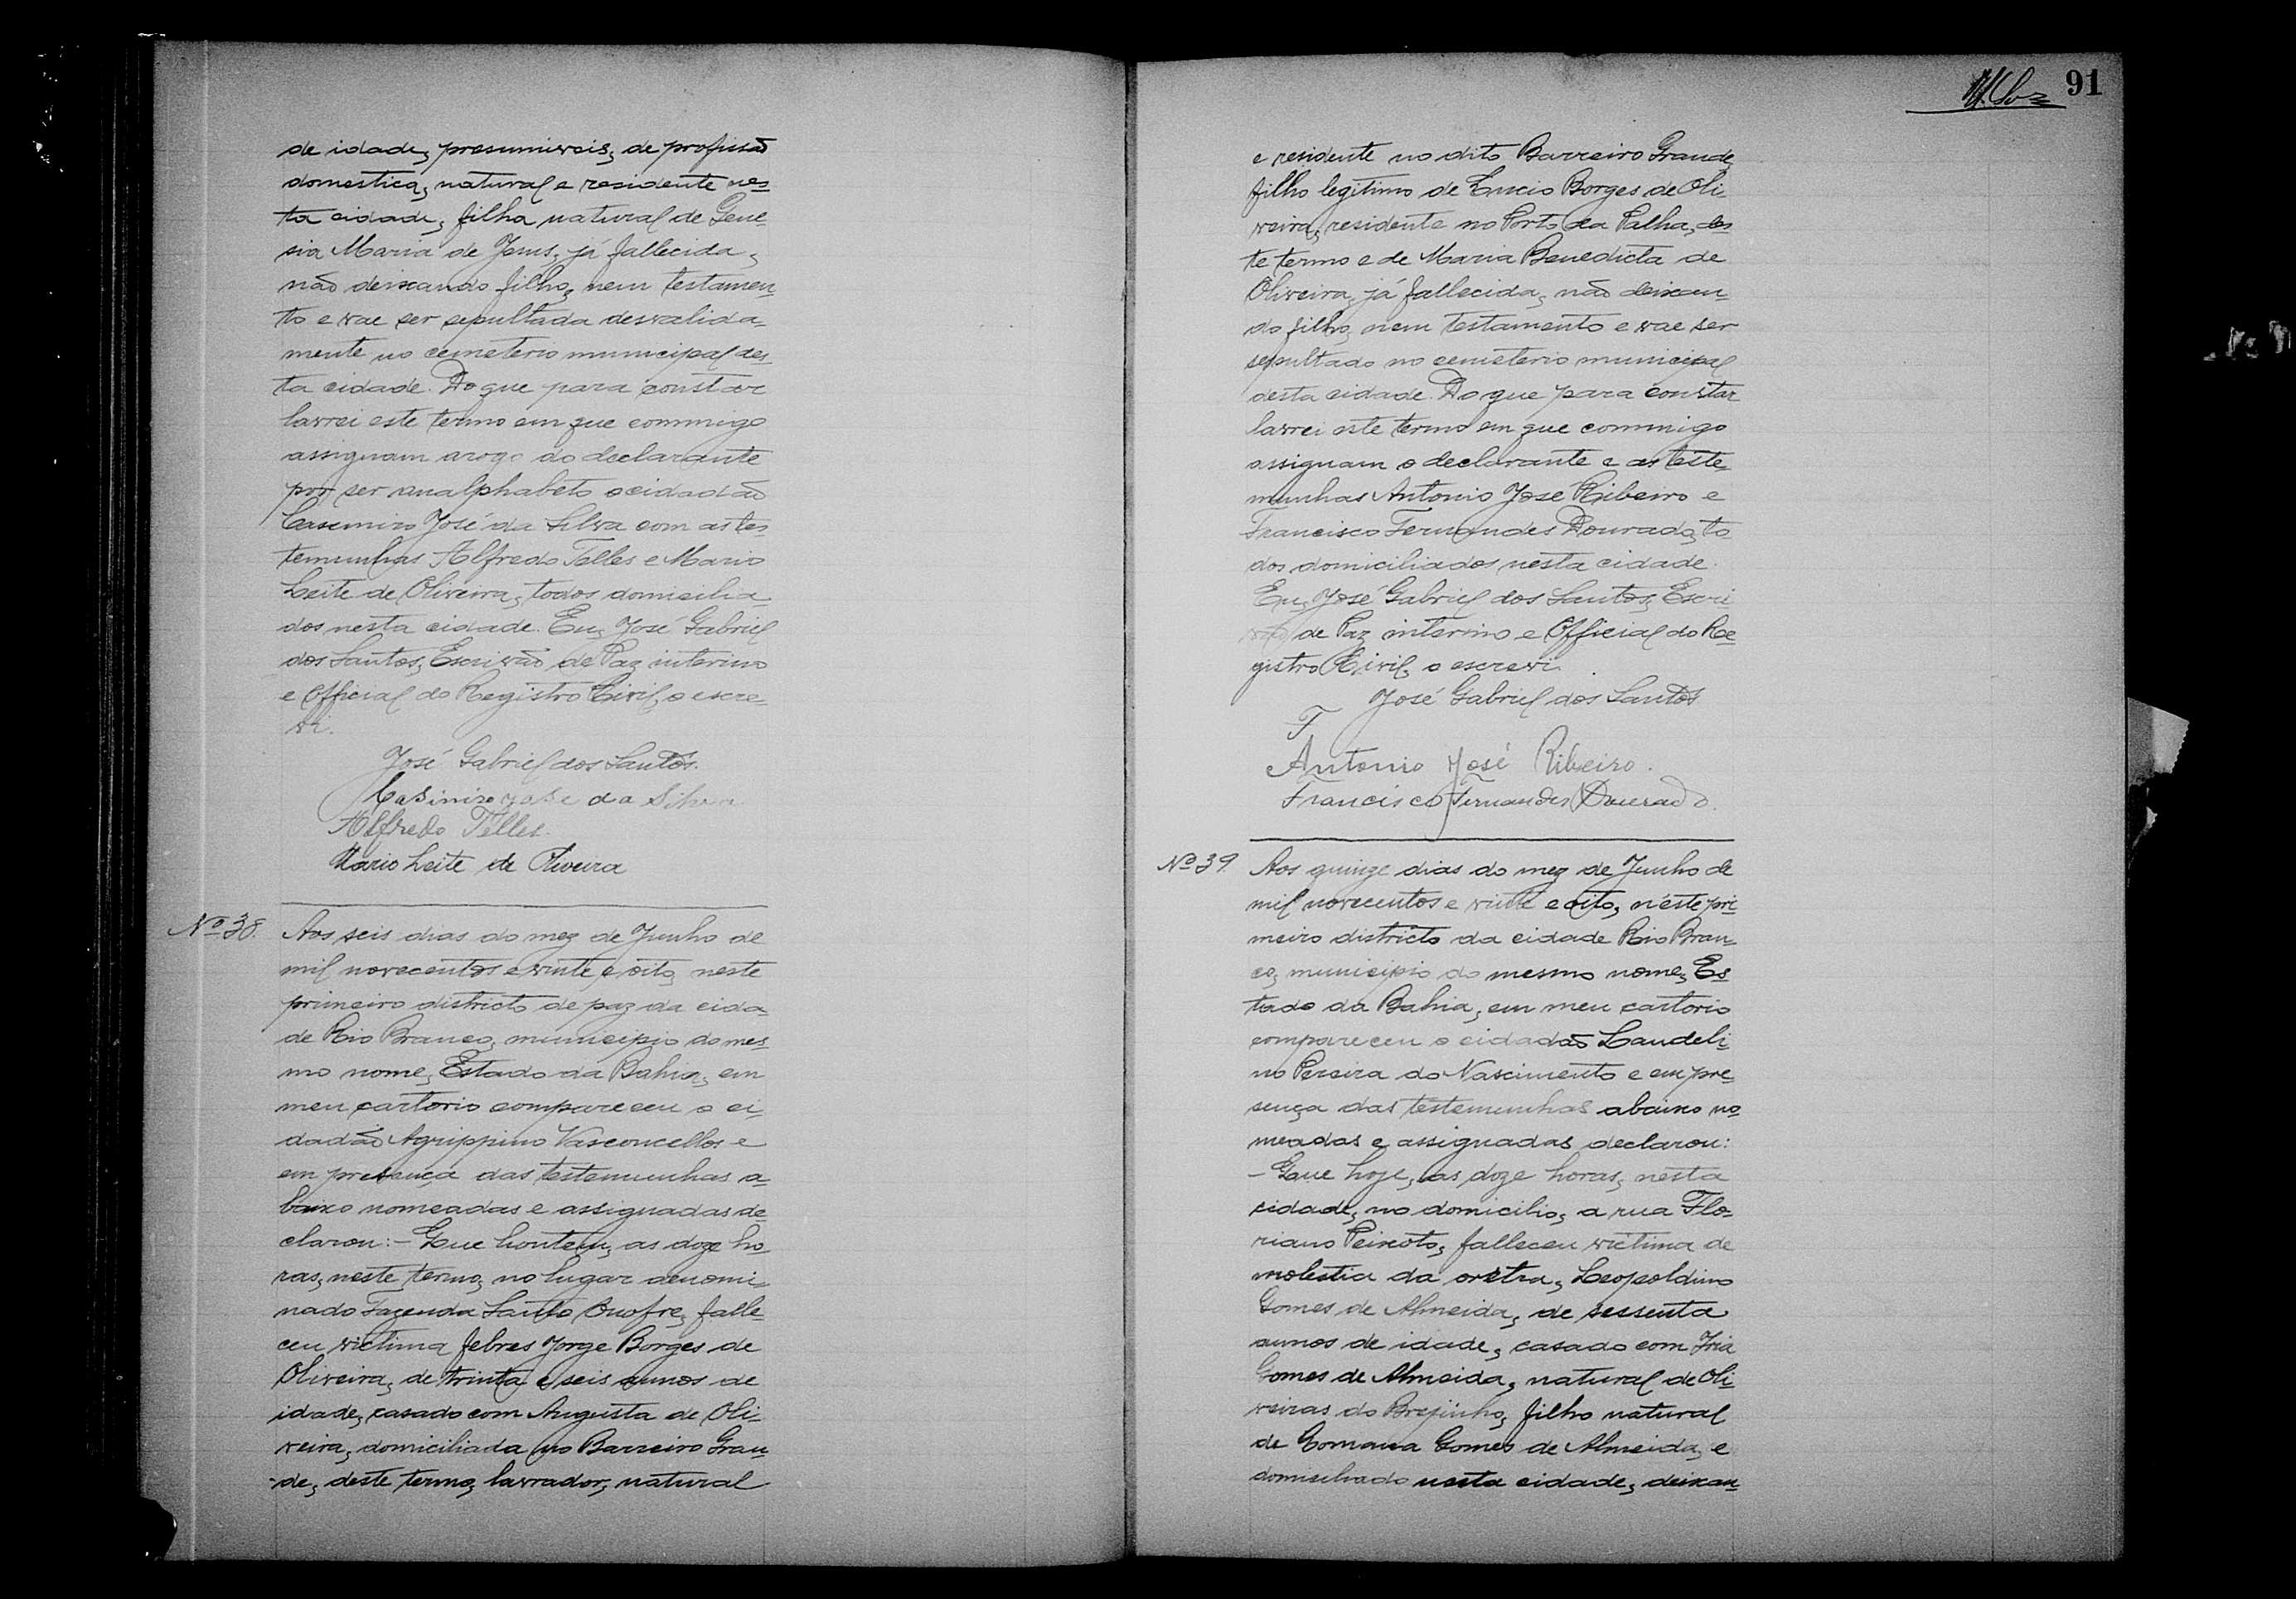 de idade, presumiveis, de profissão
domestica, natural e residente nes-
ta cidade, filha natural de Gene-
sia Maria de Jesus, já fallecida,
não deixando filho, nem testamen-
to e vae ser sepultada desvalida-
mente no cemeterio municipal des-
ta cidade. Do que para constar
lavrei este termo em que commigo
assignam arogo do declarante
por ser analphabeto o cidadão
Casemiro José da Silva com as tes-
temunhas Alfredo Telles e Mario
Leite de Oliveira, todos domicilia-
dos nesta cidade. Eu, José Gabriel
dos Santos, Escrivão de Paz interino
e Official do Registro Civil, o escre-
vi.
José Gabriel dos Santos.
Casimiro jose da Silva
Alfredo Telles.
Mario Leite de Oliveira
Nº 38.
Aos seis dias do mez de Junho de
mil novecentos e vinte e oito, neste
primeiro districto de paz da cida-
de Rio Branco, municipio do mes-
mo nome, Estado da Bahia, em
meu cartorio compareceu o ci-
dadão Agrippino Vasconcellos e
em presença das testemunhas a-
baixo nomeadas e assignadas de-
clarou:- Que hontem, as doze ho-
ras, neste termo, no lugar denomi-
nado Fazenda Santo Onofre, falle-
ceu victima febres Jorge Borges de
Oliveira, de trinta e seis annos de
idade, casado com Augusta de Oli-
veira, domiciliada no Barreiro Gran-
-de, deste termo, lavrador, natural
91
e residente no dito Barreiro Grande,
filho legitimo de Lucio Borges de Oli-
veira, residente no Porto da Palha, des-
te termo e de Maria Benedicta de
Oliveira, já fallecida, não deixan-
do filho, nem testamento e vae ser
sepultado no cemeterio municipal
desta cidade. Do que para constar
lavrei este termo em que commigo
assignam o declarante e as teste-
munhas Antonio José Ribeiro e
Francisco Fernandes Dourado, to-
dos domiciliados nesta cidade.
Eu, José Gabriel dos Santos, Escri-
vão de Paz interino e Official do Re-
gistro Civil, o escrevi.
José Gabriel dos Santos
F
Antonio José Ribeiro.
Francisco Fernandes Dourado.
Nº 39.
Aos quinze dias do mez de Junho de
mil novecentos e vinte e oito, n'este pri-
meiro districto da cidade Rio Bran-
co, municipio do mesmo nome, Es-
tado da Bahia, em meu cartorio
compareceu o cidadão Laudeli-
no Pereira do Nascimento e em pre-
sença das testemunhas abaixo no-
meadas e assignadas declarou:
- Que hoje, as doze horas, nesta
cidade, no domicilio, a rua Flo-
riano Peixoto, falleceu victima de
molestia da oretra, Leopoldino
Gomes de Almeida, de sessenta
annos de idade, casado com Iria
Gomes de Almeida, natural de Oli-
veiras do Brejinho, filho natural
de Gomes de Almeida, e
domiciliado nesta cidade, deixan-